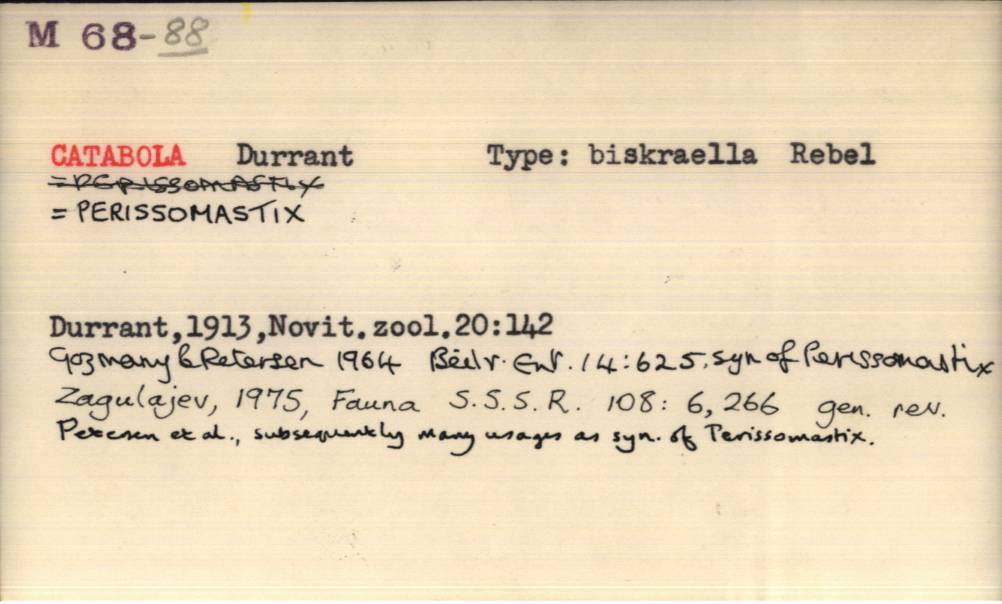 M 68-88
CATABOLA Durrant Type: biskraella Rebel
=PERISSOMASTIX
= PERISSOMASTIX
Durrant,1913,Novit.zool.20:142
Gozmany & Petersen 1964 Beitr. Ent. 14:625. syn of Perissomastix
Zagulajev, 1975, Fauna S.S.S.R. 108: 6, 266 gen. rev.
Petersen et al., subsequently many usages as syn. of Perissomastix.